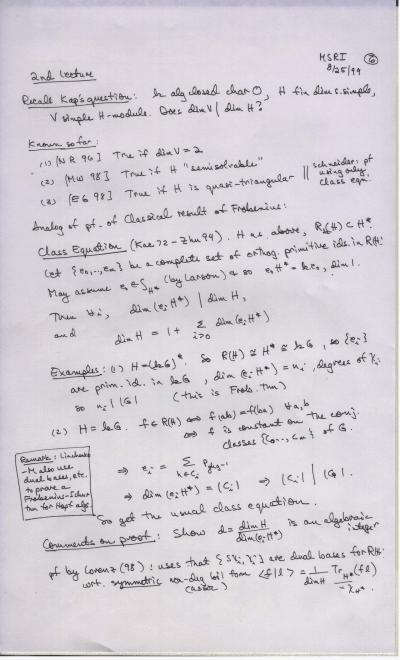 MSRI 6
8/25/99
2nd Lecture
Recall Kap's question: k alg closed char 0, H fin dim s.simple,
V simple H-module. Does dim V | dim H?
Known so far:
(1) [NR 96] True if dim V = 2
(2) [MW 98] True if H "semisolvable"
(3) [EG 98] True if H is quasi-triangular || schneider: pf using only class eqn.
Analog of pf. of Classical result of Frobenius:
Class Equation (Kac 72 - Zhu 94). H as above, R(H) ⊂ H*.
Let {e₀,.., eₘ} be a complete set of orthog. primitive ids. in R(H).
May assume e₀ ∈ ∫_H* (by Larson) so e₀H* = k e₀, dim 1.
Then ∀i, dim(eᵢH*) | dim H,
and dim H = 1 + Σ_{i>0} dim(eᵢH*)
Examples: (1) H = (kG)*. So R(H) ≅ H* ≅ kG, so {eᵢ}
are prim. id. in kG, dim(eᵢH*) = nᵢ, degrees of χᵢ
so nᵢ | |G| (this is Frob. thm)
(2) H = kG. f ∈ R(H) ⟺ f(ab) = f(ba) ∀a,b
⟺ f is constant on the conj.
classes {C₀,.., Cₘ} of G.
⇒ eᵢ = Σ_{h∈Cᵢ}
⇒ dim(eᵢH*) = |Cᵢ| ⇒ |Cᵢ| | |G|.
So get the usual class equation.
Remark: Linchenko
-M also use
dual bases, etc.
to prove a
Frobenius-Schur
thm for Hopf algs
Comments on proof: Show d = dim H / dim(eᵢH*) is an algebraic integer
pf by Lorenz (98): uses that {Sχᵢ, χᵢ} are dual bases for R(H)
wrt. symmetric non-deg bil form <f|l> = 1/dim H Tr_H*(fl)
(assoc)